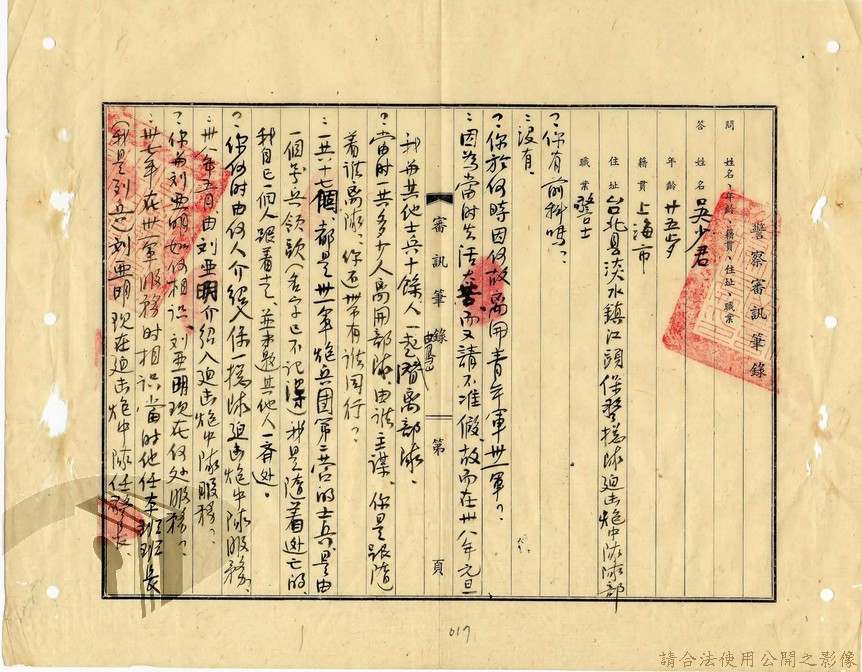 警察審訊筆錄
問 姓名、年齡、籍貫、住址、職業
答 姓名 吳少君
年齡 廿五歲
籍貫 上海市
住址 台北县淡水鎮江頭保警總隊迫击炮中隊隊部
職業 警士
?:你有前科嗎?
:沒有.
?:你於何時因何故离開青年軍卅一軍?
:因為當时生活太苦,而又請不准假,故而在卅八年元旦
我與其他士兵十餘人一起潛离部隊.
?:當时一共多少人离開部隊,由誰主謀,你是跟隨
着誰离隊,你还帶有誰同行?
:一共十七個,都是卅一軍炮兵團第二営的士兵,是由
一個
兵領頭(名字已不記
)我是隨着逃亡的,
我自己一個人跟着走,並未邀其他人一齊逃.
?:你何时由何人介紹入保一總隊迫击炮中隊服務.
:卅八年五月由刘亚明介紹入迫击炮中隊服務?
?:你與刘亚明如何相识,刘亚明现在何处服務?
:卅七年在卅一軍服務时相识當时他任本班班長
(我是列兵)刘亚明现在迫击炮中隊任警長.
審訊筆錄
第 頁
017
請合法使用公開之影像